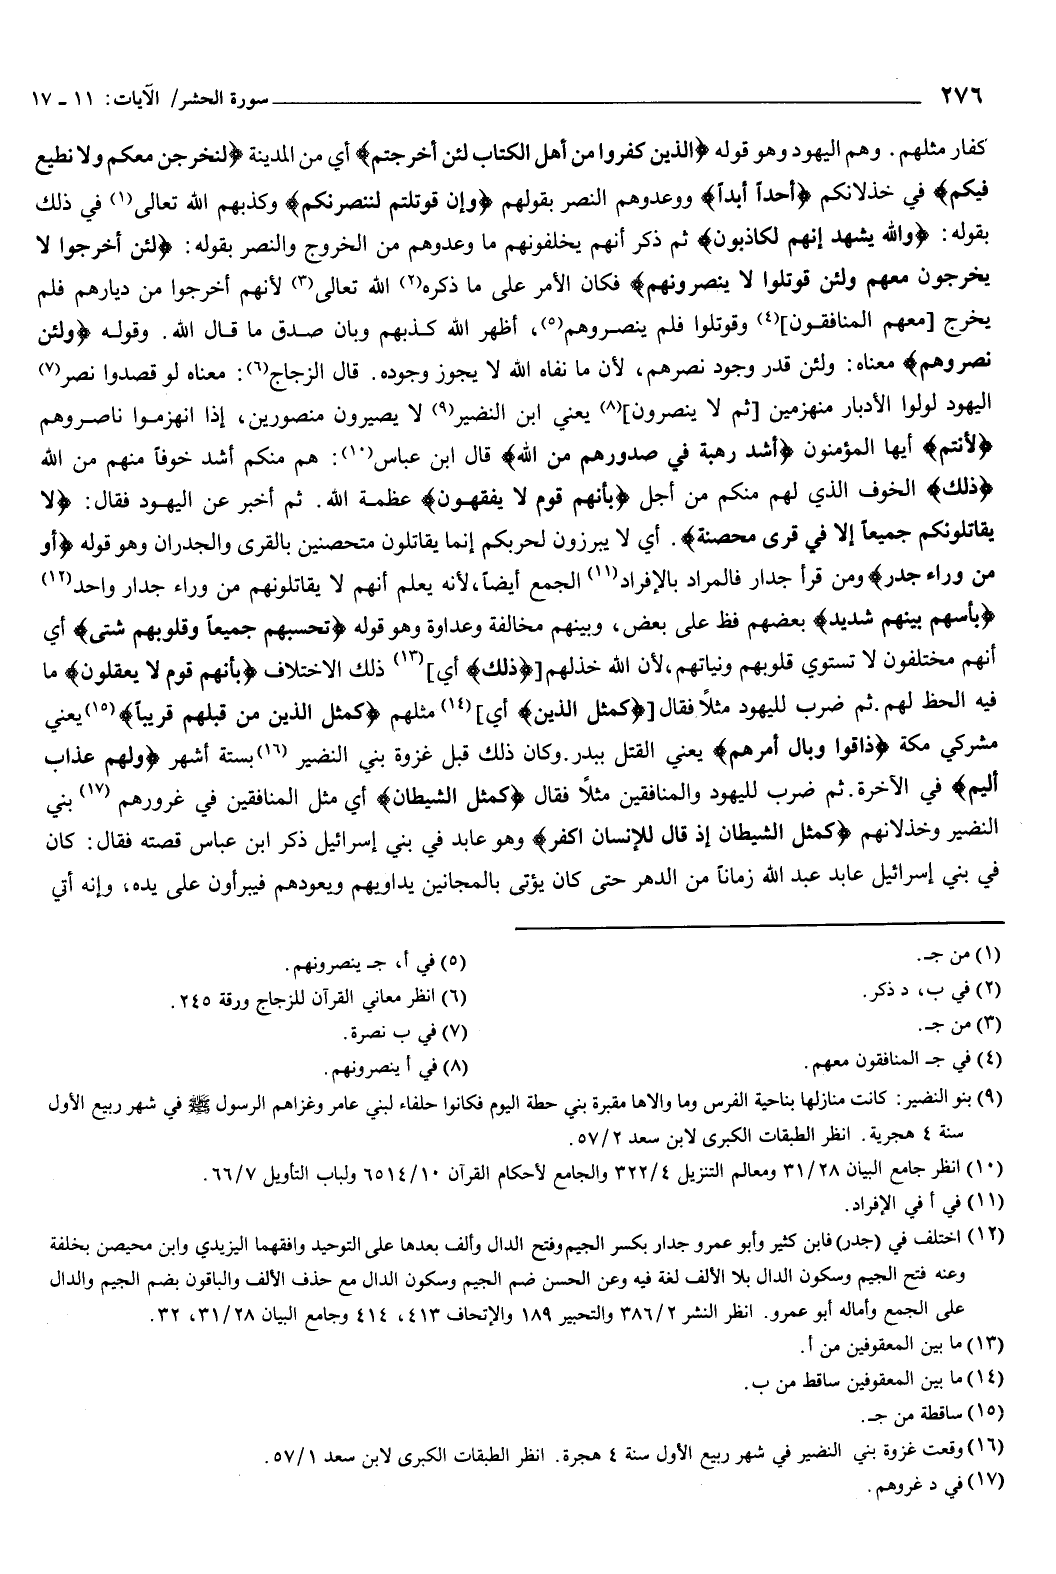 ٢٧٦ سورة الحشر/ الآيات: ١١ - ١٧
كفار مثلهم. وهم اليهود وهو قوله ﴿الذين كفروا من أهل الكتاب لئن أخرجتم﴾ أي من المدينة ﴿لنخرجن معكم ولا نطيع
فيكم﴾ في خذلانكم ﴿أحداً أبداً﴾ ووعدوهم النصر بقولهم ﴿وإن قوتلتم لننصرنكم﴾ وكذبهم الله تعالى(١) في ذلك
بقوله: ﴿والله يشهد إنهم لكاذبون﴾ ثم ذكر أنهم يخلفونهم ما وعدوهم من الخروج والنصر بقوله: ﴿لئن أخرجوا لا
يخرجون معهم ولئن قوتلوا لا ينصرونهم﴾ فكان الأمر على ما ذكره(٢) الله تعالى(٣) لأنهم أخرجوا من ديارهم فلم
يخرج [معهم المنافقون](٤) وقوتلوا فلم ينصروهم(٥)، أظهر الله كذبهم وبان صدق ما قال الله. وقوله ﴿ولئن
نصروهم﴾ معناه: ولئن قدر وجود نصرهم، لأن ما نفاه الله لا يجوز وجوده. قال الزجاج(٦): معناه لو قصدوا نصر(٧)
اليهود لولوا الأدبار منهزمين [ثم لا ينصرون](٨) يعني ابن النضير(٩) لا يصيرون منصورين، إذا انهزموا ناصروهم
﴿لأنتم﴾ أيها المؤمنون ﴿أشد رهبة في صدورهم من الله﴾ قال ابن عباس(١٠): هم منكم أشد خوفاً منهم من الله
﴿ذلك﴾ الخوف الذي لهم منكم من أجل ﴿بأنهم قوم لا يفقهون﴾ عظمة الله. ثم أخبر عن اليهود فقال: ﴿لا
يقاتلونكم جميعاً إلا في قرى محصنة﴾. أي لا يبرزون لحربكم إنما يقاتلون متحصنين بالقرى والجدران وهو قوله ﴿أو
من وراء جدر﴾ ومن قرأ جدار فالمراد بالإفراد(١١) الجمع أيضاً، لأنه يعلم أنهم لا يقاتلونهم من وراء جدار واحد(١٢)
﴿بأسهم بينهم شديد﴾ بعضهم فظ على بعض، وبينهم مخالفة وعداوة وهو قوله ﴿تحسبهم جميعاً وقلوبهم شتى﴾ أي
أنهم مختلفون لا تستوي قلوبهم ونياتهم، لأن الله خذلهم [﴿ذلك﴾ أي](١٣) ذلك الاختلاف ﴿بأنهم قوم لا يعقلون﴾ ما
فيه الحظ لهم. ثم ضرب لليهود مثلاً فقال [﴿كمثل الذين﴾ أي](١٤) مثلهم ﴿كمثل الذين من قبلهم قريباً﴾(١٥) يعني
مشركي مكة ﴿ذاقوا وبال أمرهم﴾ يعني القتل ببدر. وكان ذلك قبل غزوة بني النضير (١٦) بستة أشهر ﴿ولهم عذاب
أليم﴾ في الآخرة. ثم ضرب لليهود والمنافقين مثلاً فقال ﴿كمثل الشيطان﴾ أي مثل المنافقين في غرورهم (١٧) بني
النضير وخذلانهم ﴿كمثل الشيطان إذ قال للإنسان اكفر﴾ وهو عابد في بني إسرائيل ذكر ابن عباس قصته فقال: كان
في بني إسرائيل عابد عبد الله زماناً من الدهر حتى كان يؤتى بالمجانين يداويهم ويعودهم فيبرأون على يده، وإنه أتي
(١) من جـ.
(٢) في ب، د ذكر.
(٣) من جـ.
(٤) في جـ المنافقون معهم.
(٥) في أ، جـ ينصرونهم.
(٦) انظر معاني القرآن للزجاج ورقة ٢٤٥.
(٧) في ب نصرة.
(٨) في أ ينصرونهم.
(٩) بنو النضير: كانت منازلها بناحية الفرس وما والاها مقبرة بني حطة اليوم فكانوا حلفاء لبني عامر وغزاهم الرسول ﷺ في شهر ربيع الأول
سنة ٤ هجرية. انظر الطبقات الكبرى لابن سعد ٥٧/٢.
(١٠) انظر جامع البيان ٣١/٢٨ ومعالم التنزيل ٣٢٢/٤ والجامع لأحكام القرآن ٦٥١٤/١٠ ولباب التأويل ٦٦/٧.
(١١) في أ في الإفراد.
(١٢) اختلف في (جدر) فابن كثير وأبو عمرو جدار بكسر الجيم وفتح الدال وألف بعدها على التوحيد وافقهما اليزيدي وابن محيصن بخلفة
وعنه فتح الجيم وسكون الدال بلا الألف لغة فيه وعن الحسن ضم الجيم وسكون الدال مع حذف الألف والباقون بضم الجيم والدال
على الجمع وأماله أبو عمرو. انظر النشر ٣٨٦/٢ والتحبير ١٨٩ والإتحاف ٤١٣، ٤١٤ وجامع البيان ٣١/٢٨، ٣٢.
(١٣) ما بين المعقوفين من أ.
(١٤) ما بين المعقوفين ساقط من ب.
(١٥) ساقطة من جـ.
(١٦) وقعت غزوة بني النضير في شهر ربيع الأول سنة ٤ هجرة. انظر الطبقات الكبرى لابن سعد ٥٧/١.
(١٧) في د غروهم.